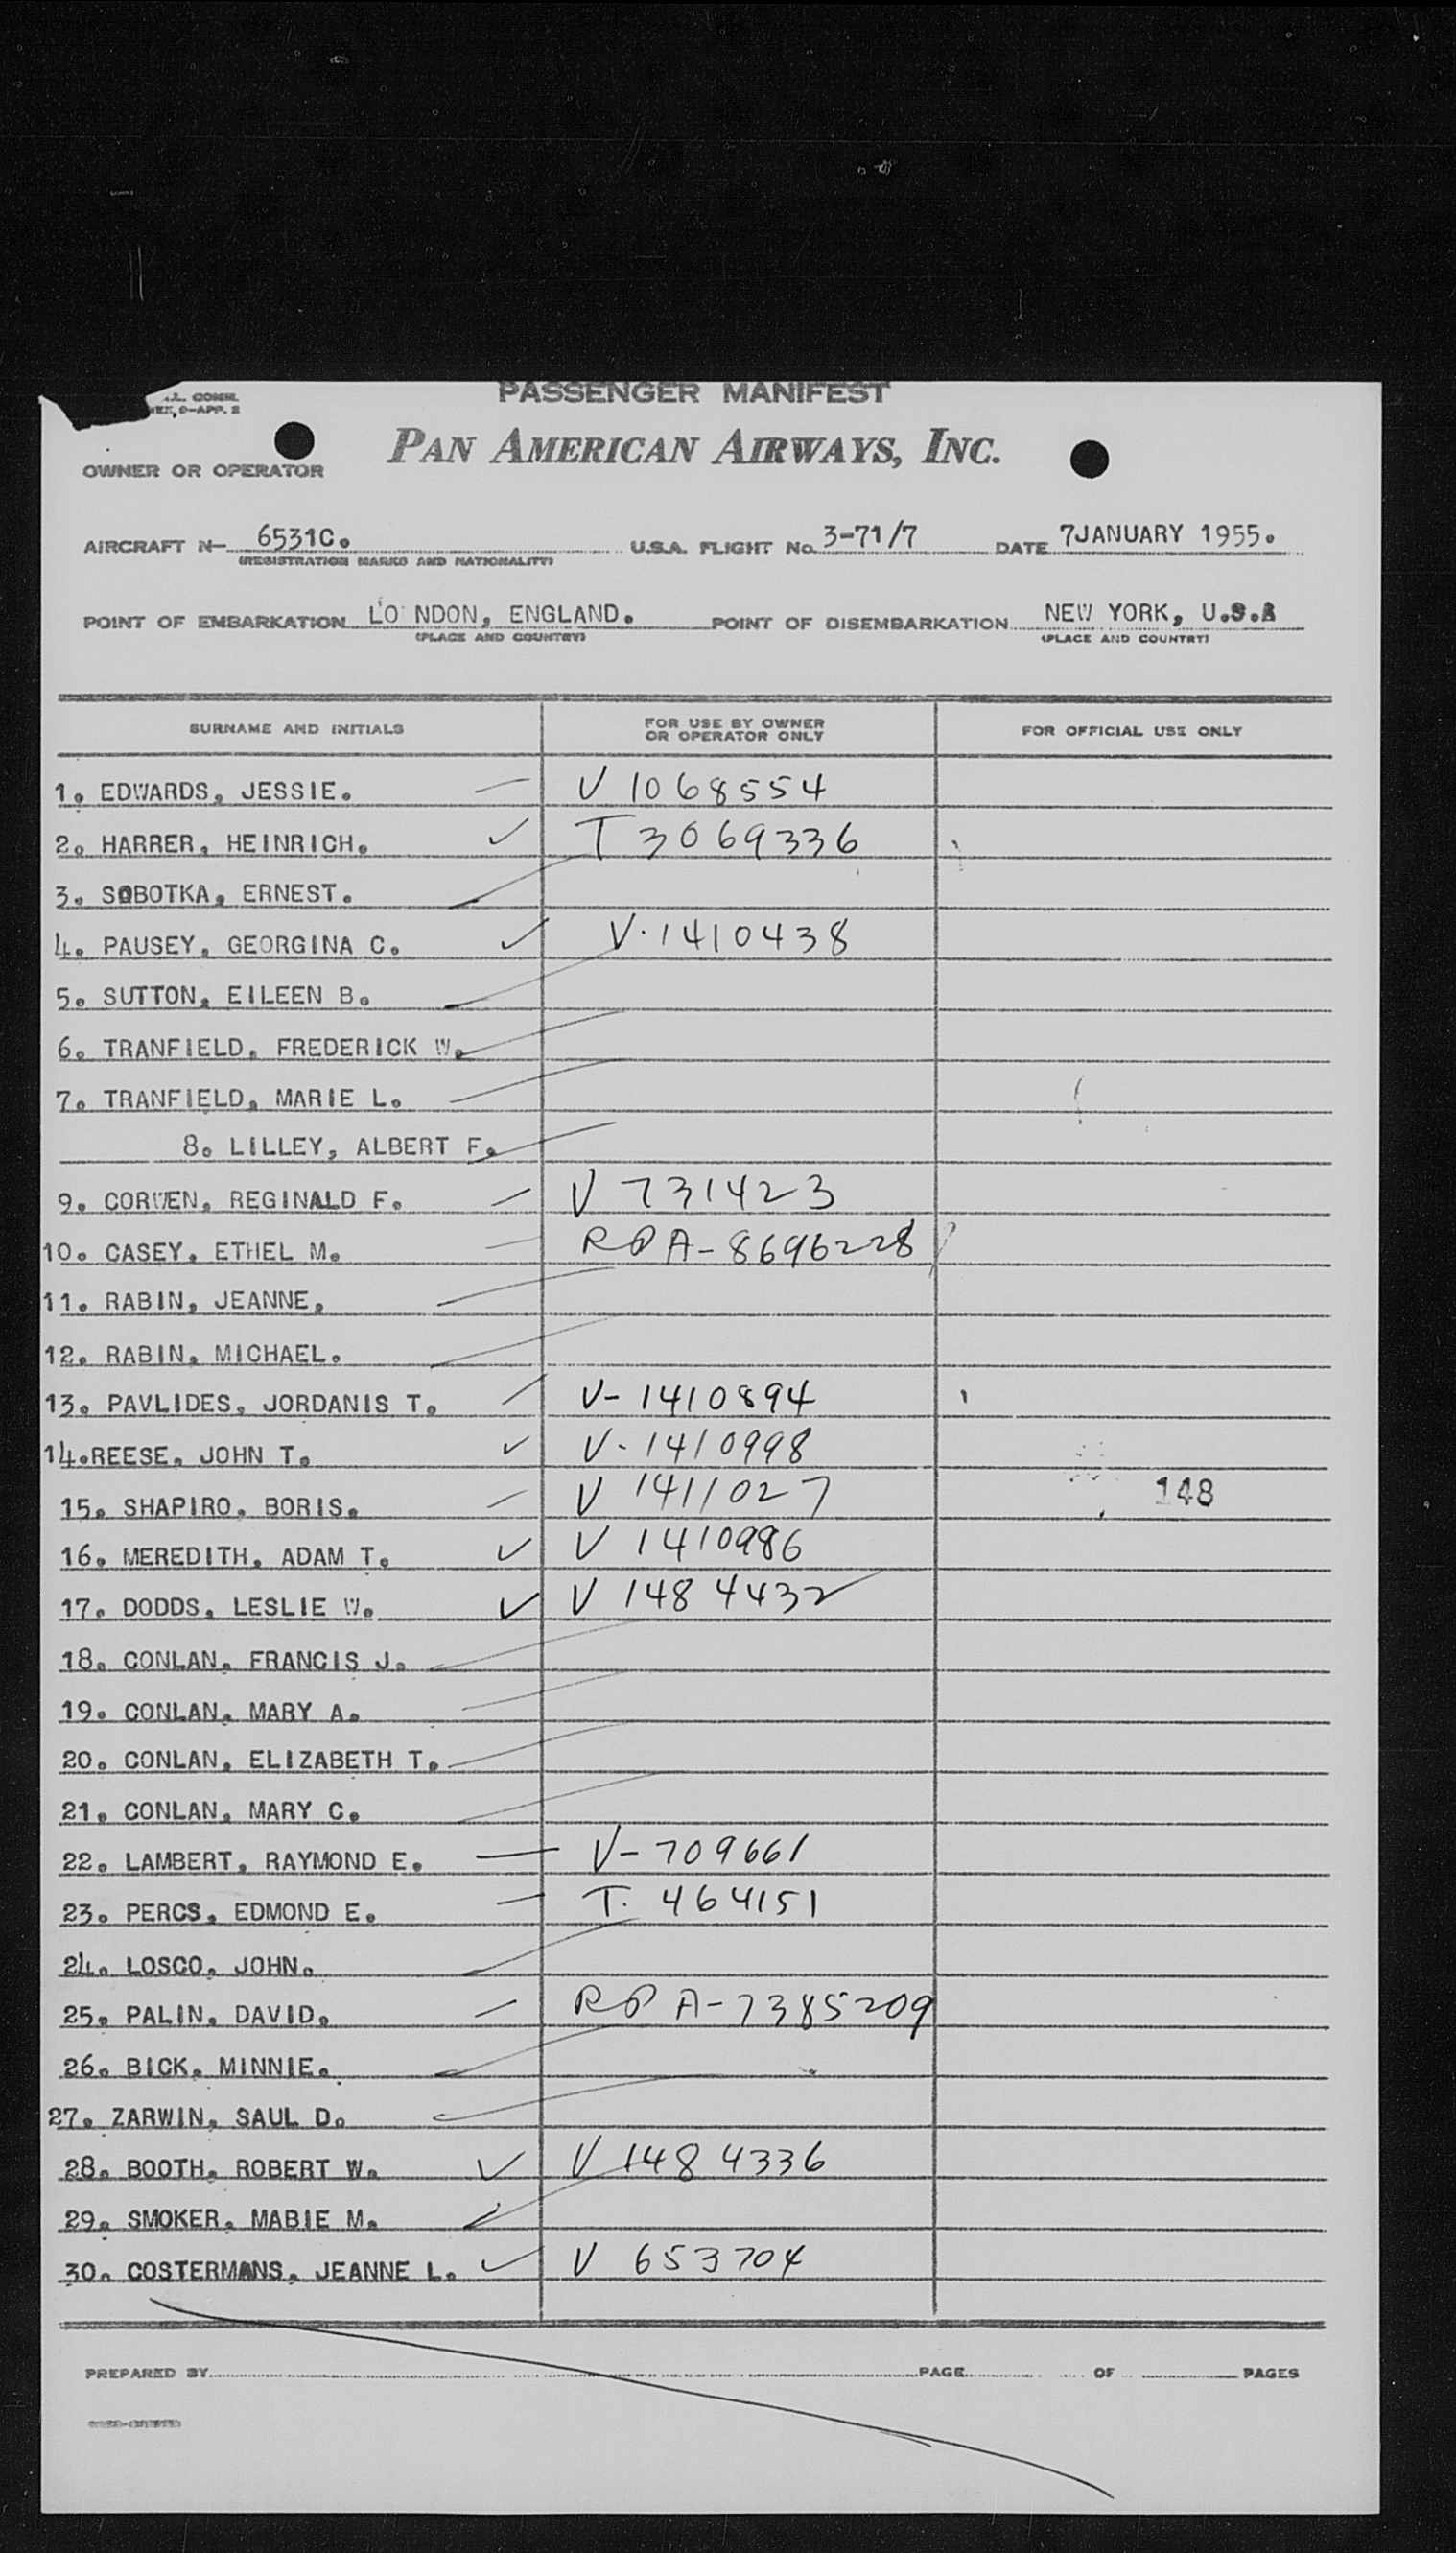 PASSENGER MANIFEST
PAN AMERICAN AIRWAYS, INC.
OWNER OR OPERATOR
AIRCRAFT N- 6531C. U.S.A. FLIGHT No. 3-71/7 DATE 7JANUARY 1955.
(REGISTRATION MARKS AND NATIONALITY)
POINT OF EMBARKATION LO NDON, ENGLAND. POINT OF DISEMBARKATION NEW YORK, U.S.A
(PLACE AND COUNTRY) (PLACE AND COUNTRY)
SURNAME AND INITIALS FOR USE BY OWNER OR OPERATOR ONLY FOR OFFICIAL USE ONLY
1. EDWARDS, JESSIE. V 1068554
2. HARRER, HEINRICH. T 3069336
3. SOBOTKA, ERNEST.
4. PAUSEY, GEORGINA C. V-1410438
5. SUTTON, EILEEN B.
6. TRANFIELD, FREDERICK W.
7. TRANFIELD, MARIE L.
8. LILLEY, ALBERT F.
9. CORWEN, REGINALD F. V 731423
10. CASEY, ETHEL M. RP A-8696228
11. RABIN, JEANNE,
12. RABIN, MICHAEL.
13. PAVLIDES, JORDANIS T. V-1410894
14.REESE, JOHN T. V-1410998
15. SHAPIRO, BORIS. V 1411027 148
16. MEREDITH, ADAM T. V 1410986
17. DODDS, LESLIE W. V 1484432
18. CONLAN, FRANCIS J.
19. CONLAN, MARY A.
20. CONLAN, ELIZABETH T.
21. CONLAN, MARY C.
22. LAMBERT, RAYMOND E. V-709661
23. PERCS, EDMOND E. T. 464151
24. LOSCO, JOHN.
25. PALIN, DAVID. RP A-7385209
26. BICK, MINNIE.
27. ZARWIN, SAUL D.
28. BOOTH, ROBERT W. V 1484336
29. SMOKER, MABIE M.
30. COSTERMANS, JEANNE L. V 653704
PREPARED BY PAGE OF PAGES